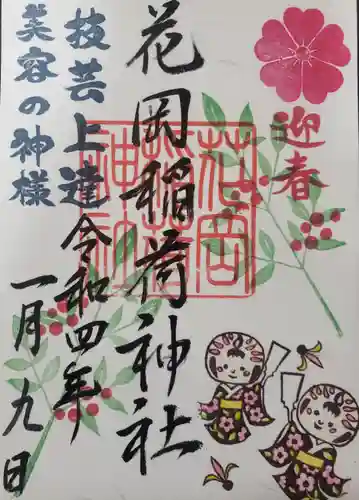 迎春
花岡稲荷神社
技芸上達
令和四年
美容の神様
一月九日